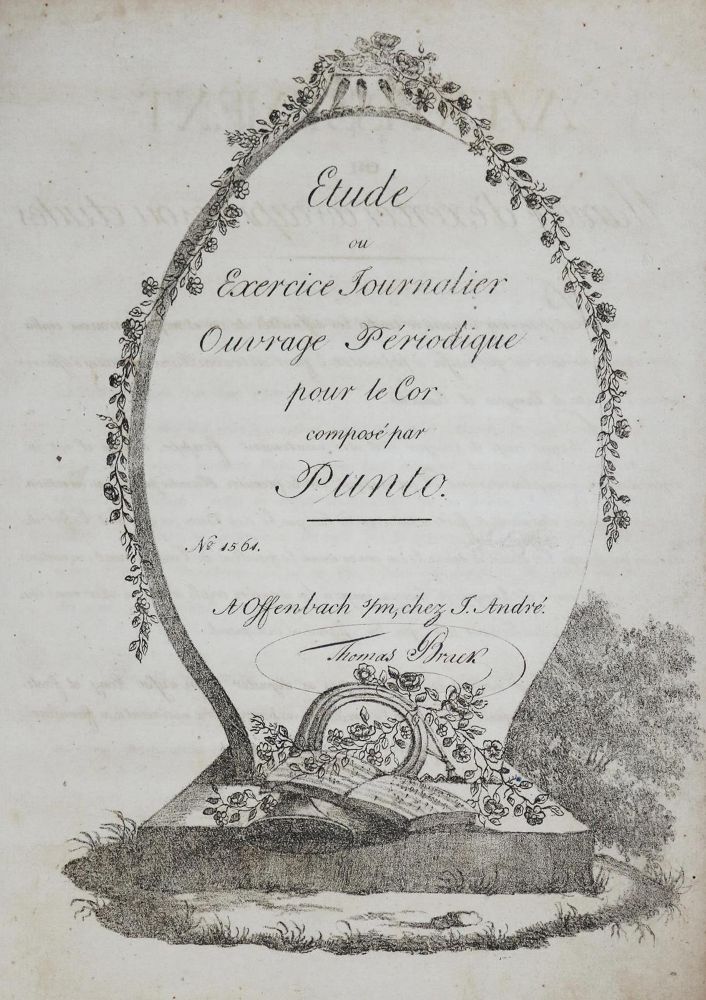 Etude
ou
Exercice Journalier
Ouvrage Périodique
pour le Cor
composé par
Punto.
No 1561.
A Offenbach s/m, chez J. André.
Thomas Brück